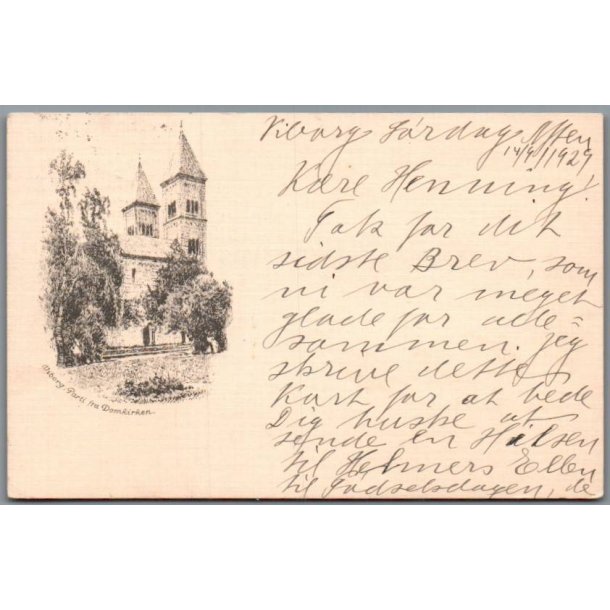 Viborg Lørdag Aften
14/9 1929
Kære Henning!
Tak for dit
sidste Brev, som
vi var meget
glade for alle=
sammen. jeg
skrive dette
Kort for at bede
Dig huske at
sende en Hilsen
til Helmers Ellen
til Fødselsdagen, de
Viborg. Parti fra Domkirken.